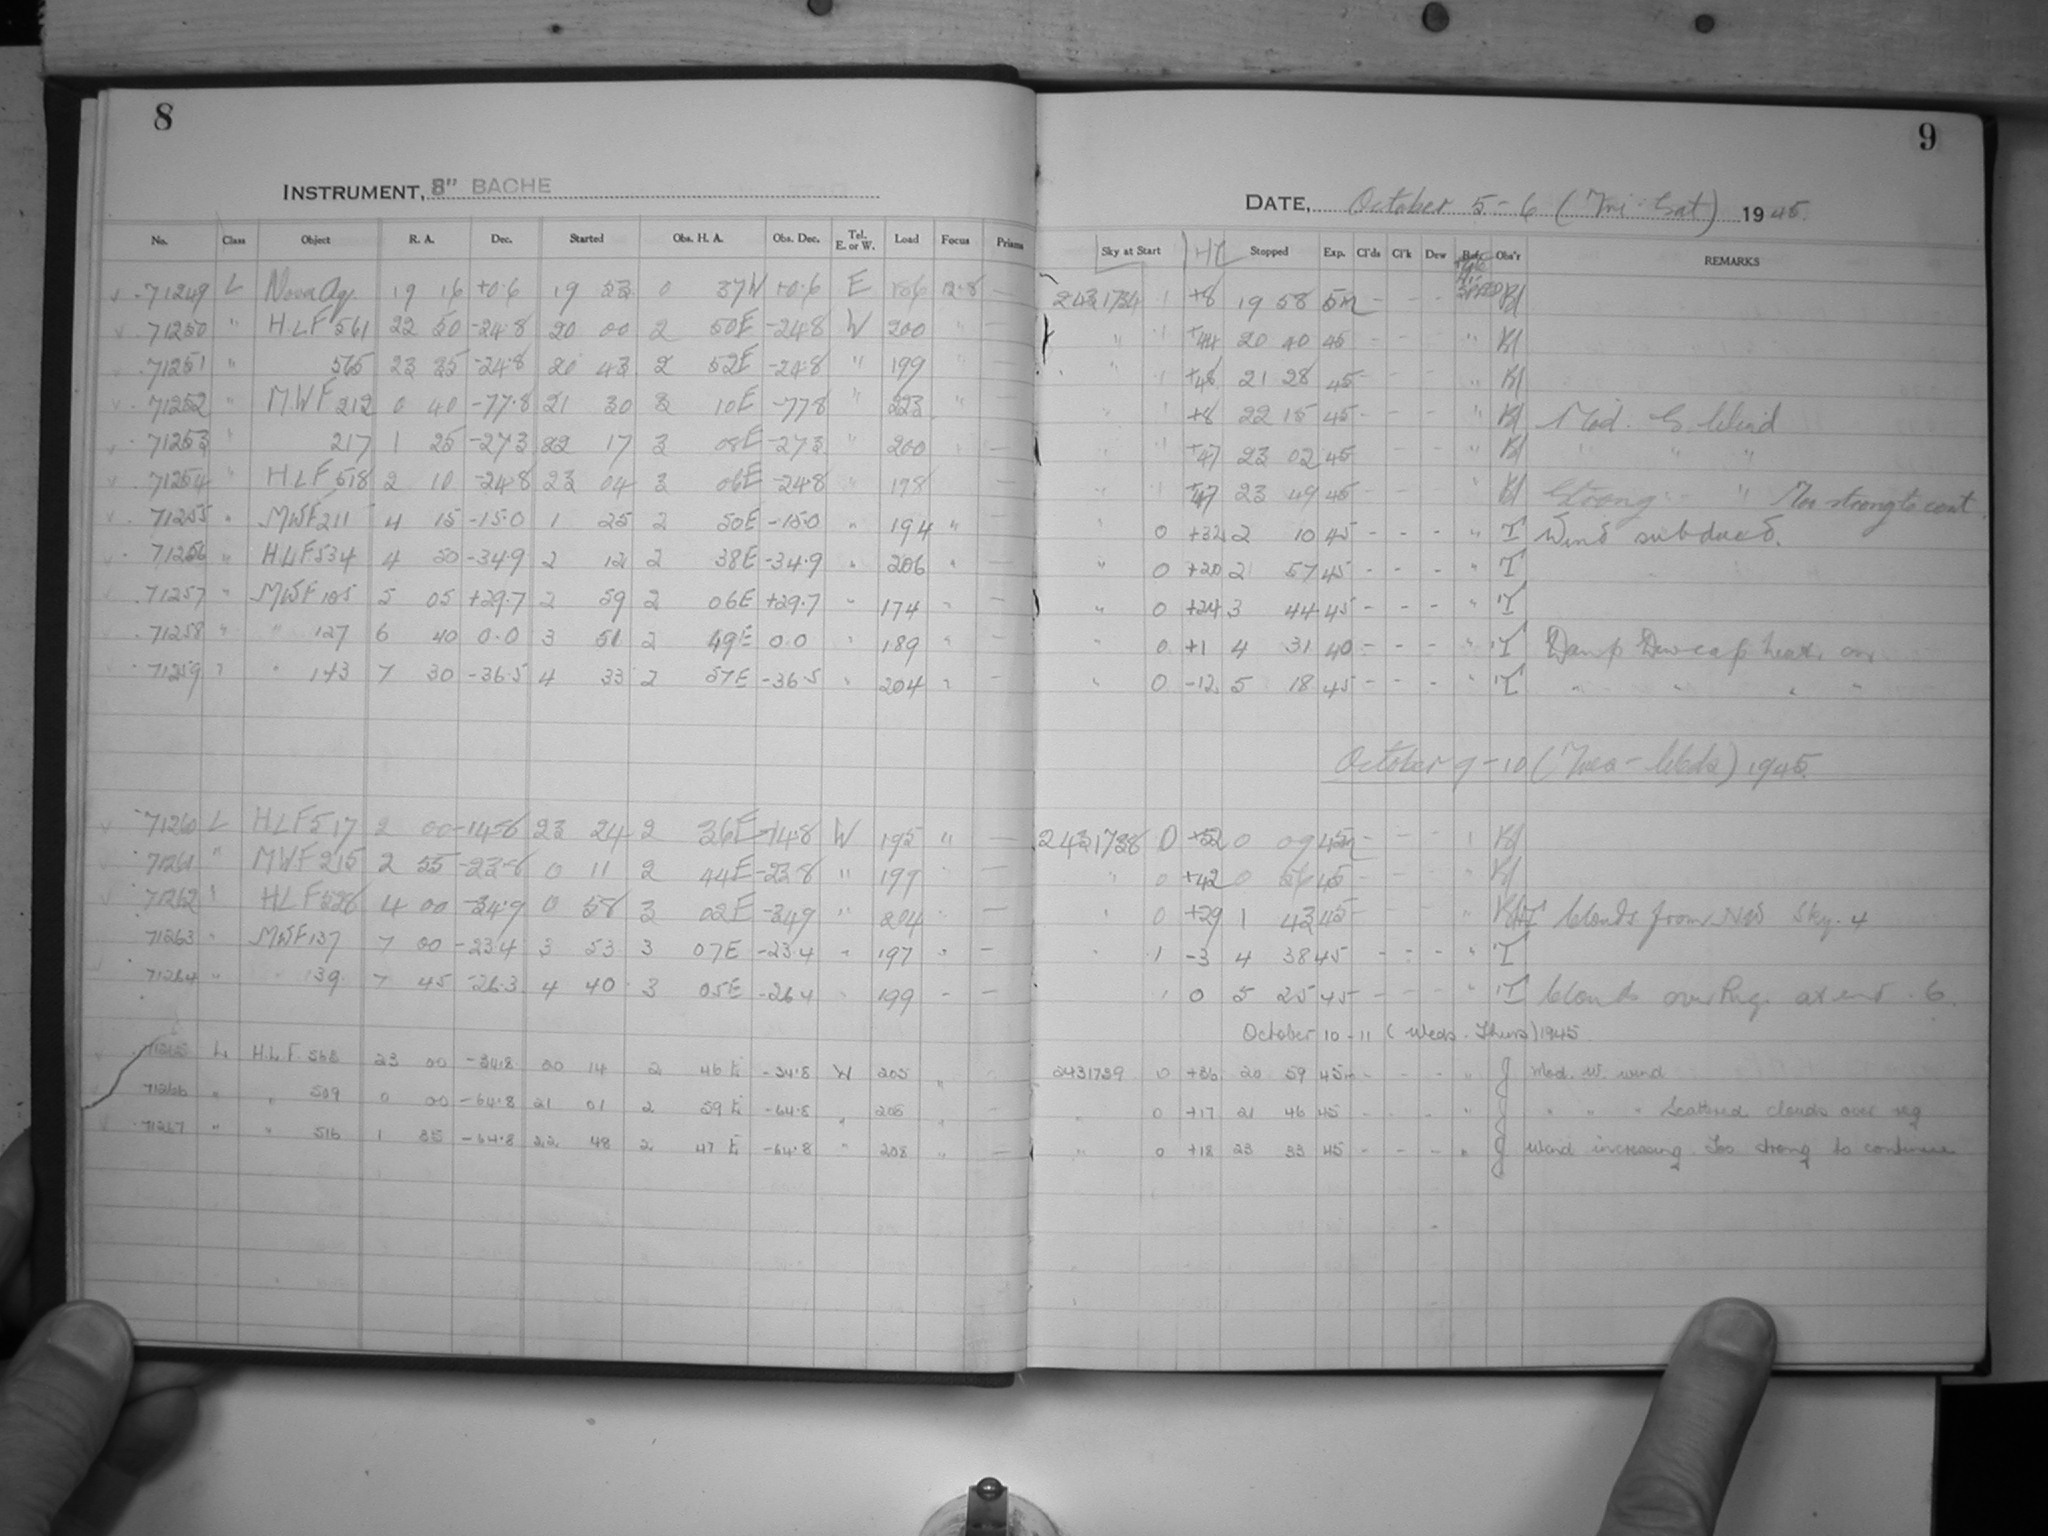 8
INSTRUMENT, 8" BACHE
No. Class Object R. A. Dec. Started Obs. H. A. Obs. Dec. Tel. E. or W. Load Focus Prisms
71249 L Nova Aql. 19 16 +0.6 19 53 0 37W +0.6 E 186 12.8 —
71250 " HLF 561 22 50 -24.8 20 00 2 50E -24.8 W 200 " —
71251 " 565 23 35 -24.8 20 43 2 52E -24.8 " 199 " —
71252 " MWF 212 0 40 -77.8 21 30 3 10E -77.8 " 223 " —
71253 " 217 1 25 -27.3 22 17 3 08E -27.3 " 200 " —
71254 " HLF 518 2 10 -24.8 23 04 3 06E -24.8 " 198 " —
71255 " MWF 211 4 15 -15.0 1 25 2 50E -15.0 " 194 " —
71256 " HLF 534 4 50 -34.9 2 12 2 38E -34.9 " 206 " —
71257 " MWF 105 5 05 +29.7 2 59 2 06E +29.7 " 174 " —
71258 " " 127 6 40 0.0 3 51 2 49E 0.0 " 189 " —
71259 " " 143 7 30 -36.5 4 33 2 57E -36.5 " 204 " —
71260 L HLF 517 2 00 -14.8 23 24 2 36E -14.8 W 195 " —
71261 " MWF 215 2 55 -23.8 0 11 2 44E -23.8 " 199 " —
71262 " HLF 528 4 00 -34.9 0 58 3 02E -34.9 " 204 " —
71263 " MWF 137 7 00 -23.4 3 53 3 07E -23.4 " 197 " —
71264 " " 139 7 45 -26.3 4 40 3 05E -26.4 " 199 - —
71265 L H.L.F. 563 23 00 -34.8 20 14 2 46E -34.8 W 205 "
71266 " " 509 0 00 -64.8 21 01 2 59E -64.8 " 208 " —
71267 " " 516 1 35 -64.8 22 48 2 47E -64.8 " 208 " —
9
DATE, October 5-6 (Fri-Sat) 1945.
Sky at Start HC Stopped Exp. Cl'ds Cl'k Dew Obs'r REMARKS
2431734 1 +8 19 58 5m - - - Bl
" 1 +44 20 40 45 - - - " Bl
" 1 +48 21 28 45 - - - " Bl
" 1 +8 22 15 45 - - - " Bl Mod. S. Wind
" 1 +47 23 02 45 - - - " Bl " " "
" 1 +47 23 49 45 - - - " Bl Strong " " Too strong to cont.
" 0 +32 2 10 45 - - - " T Wind subdued.
" 0 +20 2 57 45 - - - " T
" 0 +24 3 44 45 - - - " T
" 0 +1 4 31 40 - - - " T Damp Dewcap heat. on
" 0 -12 5 18 45 - - - " T " " " "
October 9-10 (Tues-Weds) 1945.
2431738 0 +52 0 09 45m - - - " Bl
" 0 +42 0 56 45 - - - " Bl
" 0 +29 1 43 45 - - - " Clouds from NW Sky. 4
" 1 -3 4 38 45 - - - " T
1 0 5 25 45 - - - " T Clouds over Reg. at end. 6.
October 10-11 (Weds. Thurs) 1945
2431739 0 +36 20 59 45m - - - " J Mod. W. wind
" 0 +17 21 46 45 - - - " J " " " Scattered clouds over reg
" 0 +18 23 33 45 - - - " J Wind increasing. Too strong to continue